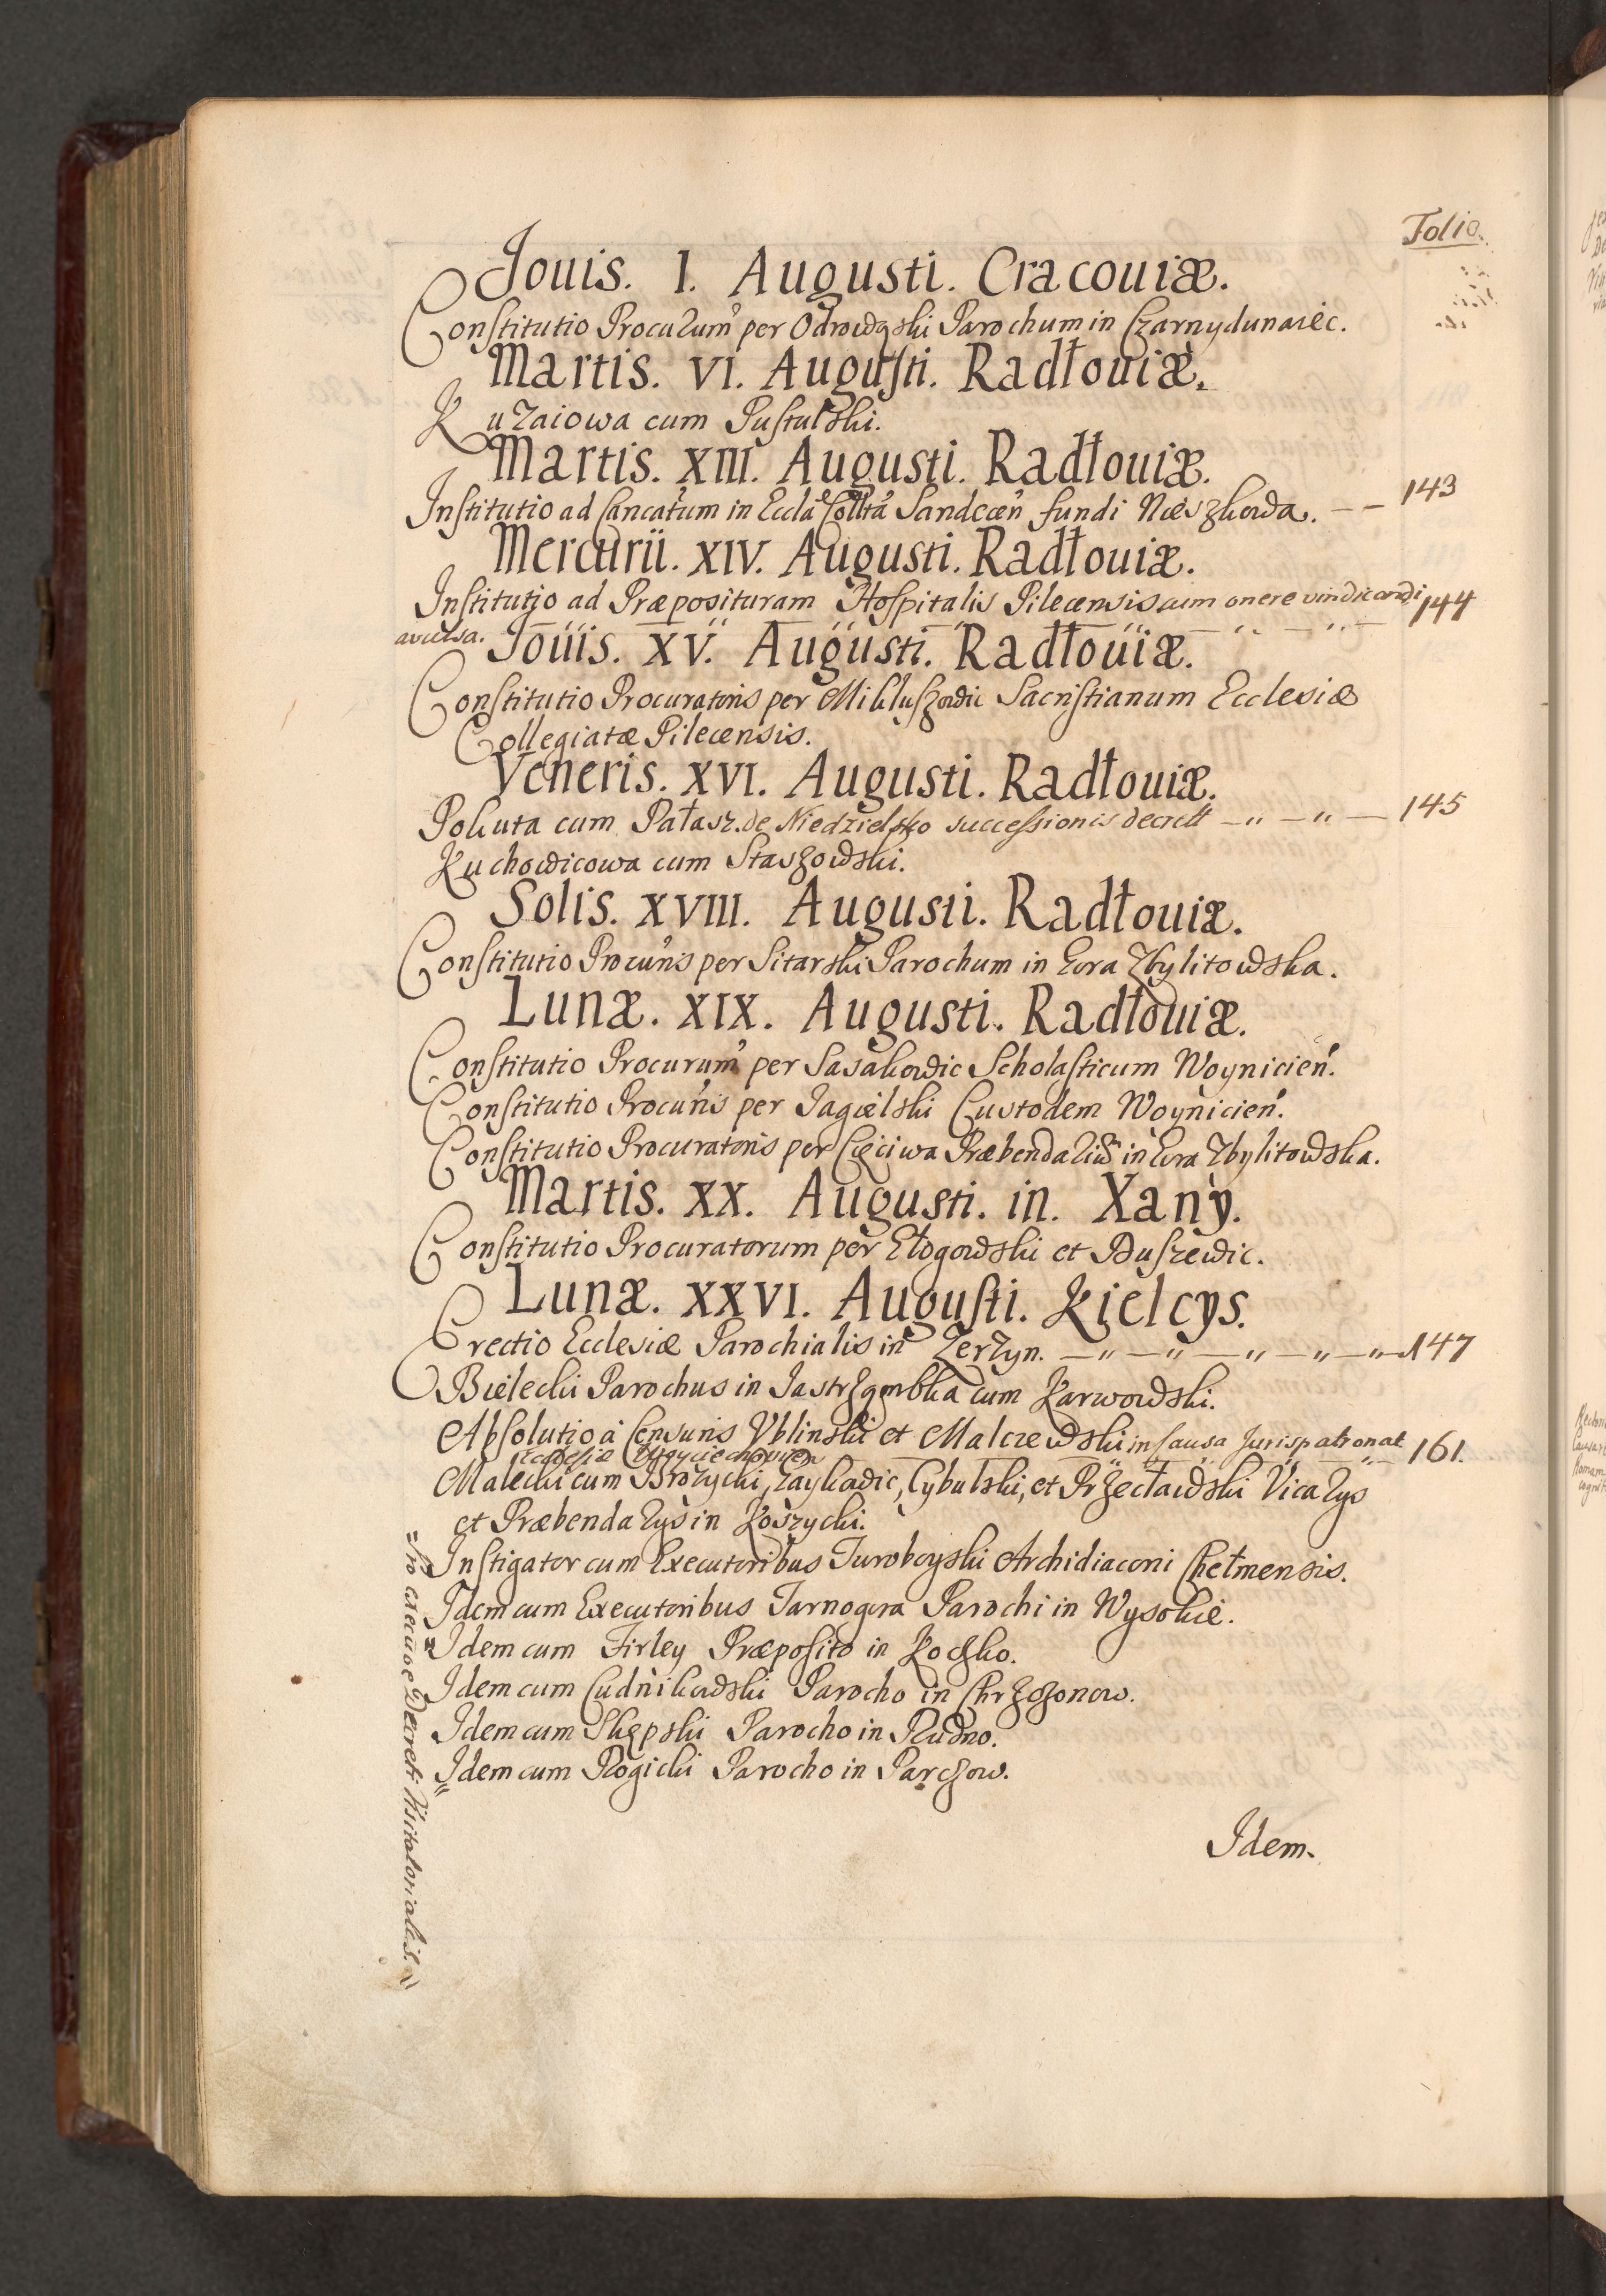 Folio.
Jouis. I. Augusti. Cracouiæ.
Constitutio Procurum per Odrowąski Parochum in Czarnydunaiec.
Martis. VI. Augusti. Radłouiæ.
Kuraiowa cum Pustulski.
Martis. XIII. Augusti. Radłouiæ.
Institutio ad Cancatum in Eccla Collta Sandecen fundi Nieszkowa. — — 143
Mercurii. XIV. Augusti. Radłouiæ.
Institutio ad Præposituram Hospitalis Pilecensis cum onere vindicandi 144
avulsa.
Jouis. XV. Augusti. Radłouiæ.
Constitutio Procuratoris per Mikluszowic Sacristianum Ecclesiæ
Collegiatæ Pilecensis.
Veneris. XVI. Augusti. Radłouiæ.
Pokuta cum Pałasz. de Niedzielsko successionis decrett — " — " — 145
Kuchowicowa cum Staszowski.
Solis. XVIII. Augusti. Radłouiæ.
Constitutio Procuris per Sitarski Parochum in Gora Zbylitowska.
Lunæ. XIX. Augusti. Radłouiæ.
Constitutio Procurum per Sasakowic Scholasticum Woynicien.
Constitutio Procuris per Jagielski Custodem Woynicien.
Constitutio Procuratoris per Cięciwa Præbendariū in Gora Zbylitowska.
Martis. XX. Augusti. in. Xany.
Constitutio Procuratorum per Głogowski et Buszewic.
Lunæ. XXVI. Augusti. Kielcys.
Erectio Ecclesiæ Parochialis in Zerzyn. — " — " — " — " — " — 147
Bielecki Parochus in Jastrząmbka cum Karwowski.
Absolutio à Censuris Vblinski et Malczewski in Causa Jurispatronat 161.
Ecclesiæ
Malecki cum Brozycki, Zaykowic, Cybulski, et Przecławski Vicarys
et Præbendarys in Koszycki.
Instigator cum Executoribus Turoboyski Archidiaconi Chełmensis.
Idem cum Executoribus Tarnogora Parochi in Wysokie.
Idem cum Firley Præposito in Koczko.
Idem cum Cudnikowski Parocho in Chrzczonow.
Idem cum Skępski Parocho in Rudno.
Idem cum Rogicki Parocho in Parczow.
Decreti Visitatorialis.
Idem.